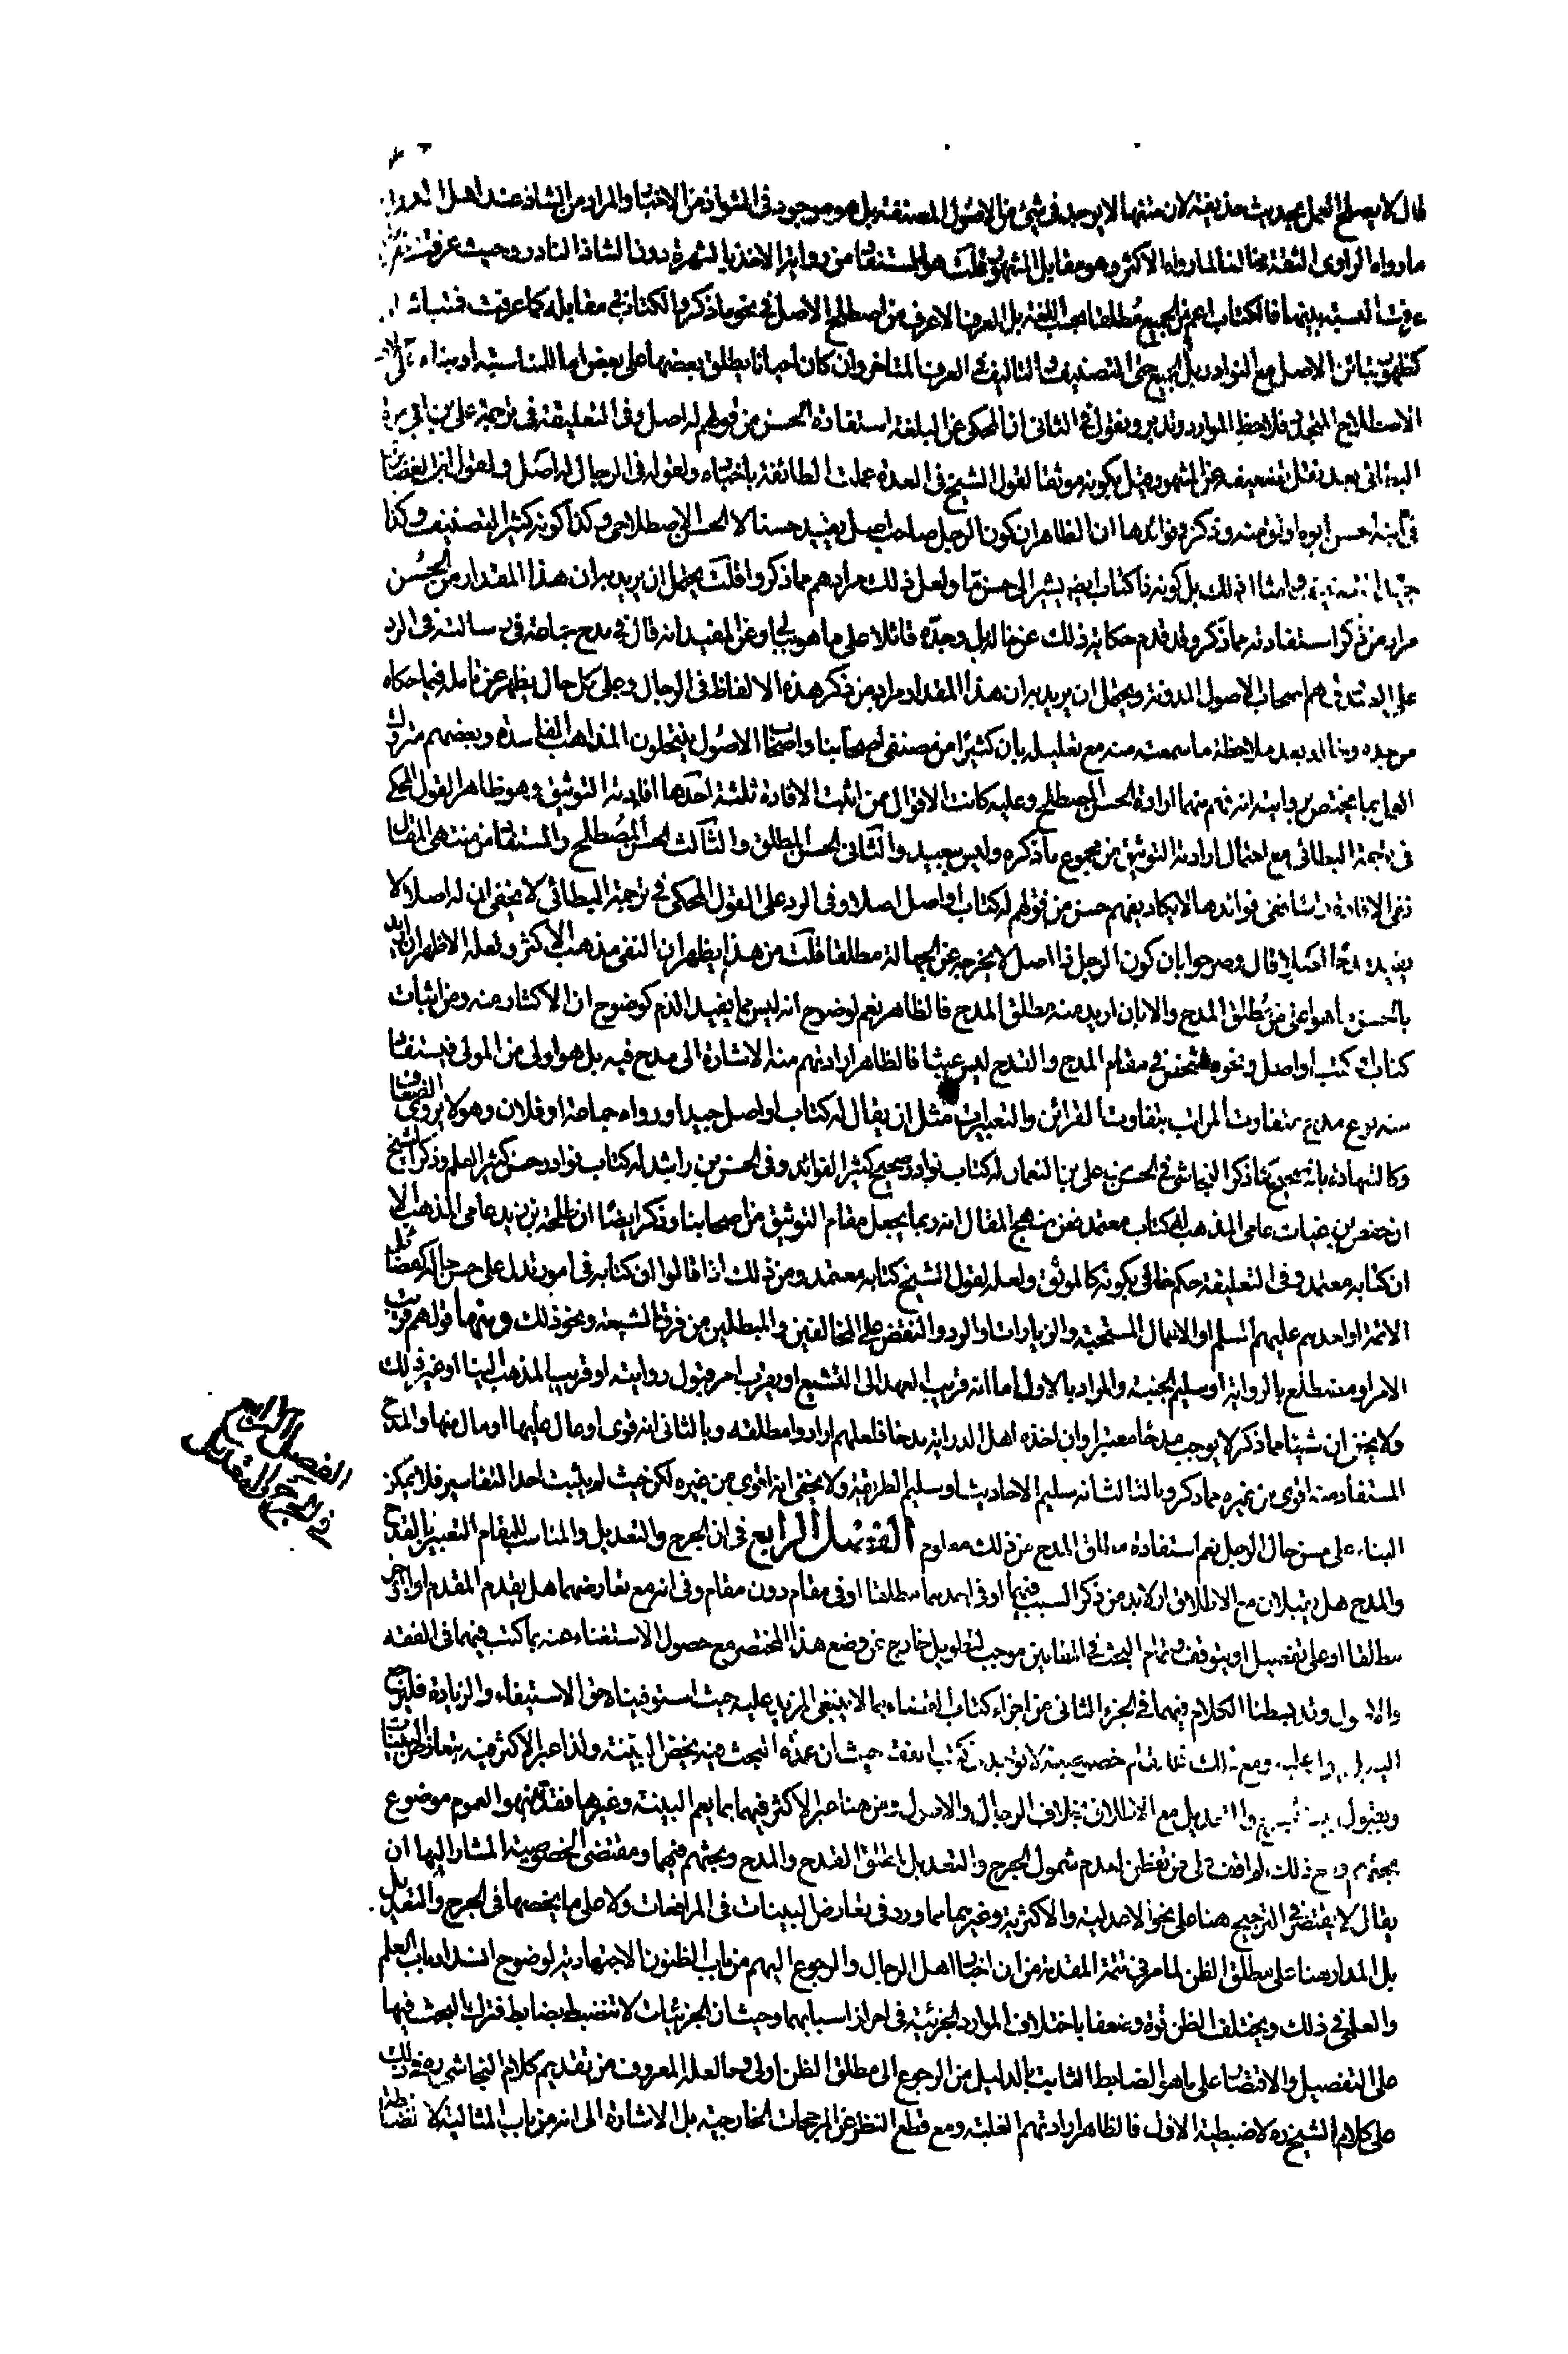 قال لا يصلح العمل بحديث حذيفة لان متنها لا يوجد في شيء من الاصول المصنفة بل هو موجود في الشواذ من الاخبار والمراد من الشاذ عند اهل الدراية
ما رواه الراوى الثقة مخالفا لما رواه الاكثر وهو مقابل المشهور قلت هو المستفاد من رواية الاخذ بالشهرة دون الشاذ النادر وحيث عرفت
عرفت النسبة بينهما فالكتاب اعم من الجميع مطلقا بحسب اللغة بل العرف الاعرف من اصطلح الاصل في نحو ما ذكر والكتاب في مقابله كما عرفت فتباين
كظهور تباين الاصل مع النوادر بل الجميع حتى التصنيف والتاليف في العرف المتاخر وان كان احيانا يطلق بعضها على بعض اما للمناسبة او بناء على
الاصطلاح فلاحظ الموارد وتدبر ونقول في الثانى ان المحكى عن البلغة استفادة الحسن من قولهم له اصل وفي التعليقة في ترجمة على بن ابى حمزة
البطائنى بعد نقل تضعيفه عن المشهور وقيل بكونه موثقا لقول الشيخ في العدة عملت الطائفة باخباره ولقوله في الرجال له اصل ولقول ابن الغضايرى
في ابنه الحسن ابوه اوثق منه وذكر في فوائدها ان الظاهر ان كون الرجل صاحب اصل يفيد حسنا لا الحسن الاصطلاحى وكذا كونه كثير التصنيف وكذا
جيد التصنيف وامثال ذلك بل كونه ذا كتاب ايضا يشير الى حسن ما ولعل ذلك مرادهم مما ذكروا قلت يحتمل ان يريد به ان هذا المقدار من الحسن
مراد من ذكر استفادته مما ذكر وقد قدم حكاية ذلك عن خاله بل وجده قائلا على ما هو ببالى وعن المفيد انه قال في مدح جماعة في رسالته في الرد
على الصدوق هم اصحاب الاصول المدونة ويحتمل ان يريد به ان هذا المقدار مراد من ذكر هذه الالفاظ في الرجال وعلى كل حال يظهر عن تامله فيما حكاه
عن جده وخاله بعد ملاحظة ما سمعت منه مع تعليله بان كثيرا من مصنفى اصحابنا واصحاب الاصول ينتحلون المذاهب الفاسدة وبعضهم متروك
العمل بما يختص بروايته انه فهم منهما ارادة الحسن المصطلح وعليه كانت الاقوال ممن اثبت الافادة ثلثة احدها افادته التوثيق وهو ظاهر القول المحكى
في ترجمة البطائنى مع احتمال ارادة التوثيق من مجموع ما ذكره وليس ببعيد والثانى الحسن المطلق والثالث الحسن المصطلح والمستفاد من منتهى المقال
نفى الافادة ففى فوائدها لا يكاد يفهم حسن من قولهم له كتاب او اصل اصلا وفي الرد على القول المحكى في ترجمة البطائنى لا يخفى ان له اصلا لا
يفيد مدحا اصلا قال وصرحوا بان كون الرجل ذا اصل لا يخرجه عن الجهالة مطلقا قلت من هذا يظهر ان النفى مذهب الاكثر ولعله الاظهر ان اريد
بالحسن ما هو اعلى من مطلق المدح والا بان اريد منه مطلق المدح فالظاهر نعم لوضوح انه ليس مما يفيد الذم كوضوح ان الاكثار منه ومن اثبات
كتاب او كتب او اصل ونحوه لشخص في مقام المدح والقدح ليس عبثا فالظاهر ارادتهم منه الاشارة الى مدح فيه بل هو اولى من المولى فيستفاد
منه نوع مدح يتفاوت المراتب بتفاوت القرائن والتعبيرات مثل ان يقال له كتاب او اصل جيد او رواه جماعة او فلان وهو لا يروى عن الضعفاء
وكالشهادة بانه صحيح كما ذكر النجاشى في الحسن بن على بن النعمان له كتاب نوادر صحيح كثير الفوائد وفي الحسن بن راشد له كتاب نوادر حسن كثير العلم وذكر الشيخ
ان حفص بن غياث عامى المذهب له كتاب معتمد فعن منهج المقال انه ربما يجعل مقام التوثيق من اصحابنا وذكر ايضا ان طلحة بن زيد عامى المذهب الا
ان كتابه معتمد وفي التعليقة حكم خالى بكونه كالموثق ولعله لقول الشيخ كتابه معتمد ومن ذلك اذا قالوا ان كتابه في امور تدل على حسن حاله كفضائل
الائمة او احدهم عليهم السلم او الاعمال المستحبة والزيارات او الرد والنقض على المخالفين والمبطلين من فرق الشيعة ونحو ذلك ومنها قولهم قريب
الامر او مضطلع بالرواية او سليم الجنبة والمراد بالاول اما انه قريب العهد الى التشيع او يقرب امر قبول روايته او قريب المذهب الينا او غير ذلك
ولا يخفى ان شيئا مما ذكر لا يوجب مدحا معتبرا وان اخذه اهل الدراية مدحا فلعلهم ارادوا مطلقه وبالثانى انه قوى او عال عليها او مال منها والمدح
المستفاد منه اقوى من غيره مما ذكر وبالثالث انه سليم الاحاديث او سليم الطريقة ولا يخفى انه اقوى من غيره لكن حيث لم يثبت احد التفاسير فلا يمكن
البناء على حسن حال الرجل نعم استفادة مطلق المدح من ذلك معلوم الفصل الرابع في ان الجرح والتعديل والمناسب للمقام التعبير بالقدح
والمدح هل يقبلان مع الاطلاق او لا بد من ذكر السبب فيهما او في احدهما مطلقا او في مقام دون مقام وفي انه مع تعارضهما هل يقدم المقدم او المؤخر
مطلقا او على تفصيل او يتوقف وتمام البحث في المقامين موجب لتطويل خارج عن وضع هذا المختصر مع حصول الاستغناء عنه بما كتب فيهما في الفقه
والاصول وقد بسطنا الكلام فيهما في الجزء الثانى من اجزاء كتاب القضاء بما لا ينبغى المزيد عليه حيث استوفيناه حق الاستيفاء والزيادة فليرجع
اليه ومع ذلك خصوصية لا توجد في كتب الفقه حيث ان عمدة البحث فيه بخصوص البينة ولذا عبر الاكثر فيه بتعارض البينات
وبقبول والتعديل مع الاطلاق بخلاف الرجال والاصول ومن هنا عبر الاكثر فيهما بما يعم البينة وغيرها فقد والعموم موضوع
بحثهم ومع ذلك لم اقف على من تفطن لعدم شمول الجرح والتعديل لمطلق القدح والمدح وبحثهم فيهما ومقتضى الخصوصية المشار اليها ان
يقال لا يقتصر في الترجيح هنا على نحو الاعدلية والاكثرية وغيرهما مما ورد في تعارض البينات في المرافعات ولا على ما يخصها في الجرح والتعديل
بل المدار هنا على مطلق الظن لما مر في تتمة المقدمة من ان اخبار اهل الرجال والرجوع اليهم من باب الظنون الاجتهادية لوضوح انسداد باب العلم
والعلمى في ذلك ويختلف الظن قوة وضعفا باختلاف الموارد الجزئية في احراز اسبابهما وحيث ان الجزئيات لا تنضبط بضابط فترك البحث فيها
على التفصيل والاقتصار على ما هو الضابط الثابت بالدليل من الرجوع الى مطلق الظن اولى وحال المعروف من تقديم كلام النجاشى ره في ذلك
على كلام الشيخ ره لاضبطية الاول فالظاهر ارادتهم الغلبة ومع قطع النظر عن المرجحات الخارجية بل الاشارة الى انه من باب المثال
الفصل الرابع
في الجرح والتعديل